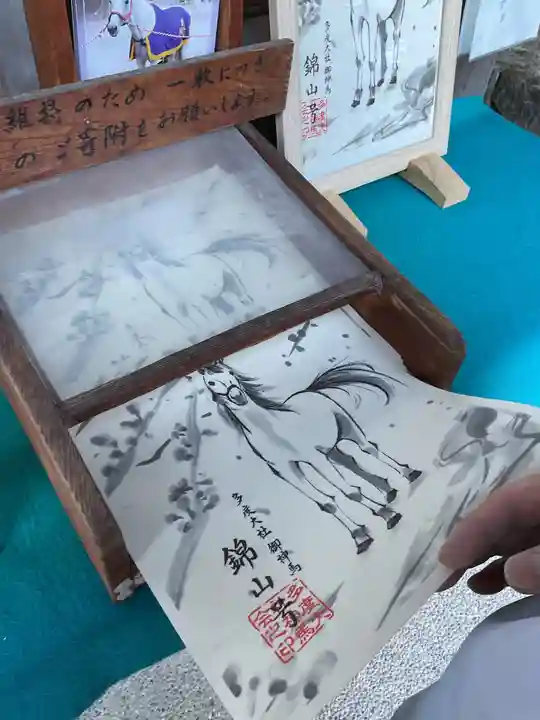 維持のため 一枚につき
のご寄附をお願いします。
多度大社 御神馬
錦山号
多度大社 御神馬
錦山号